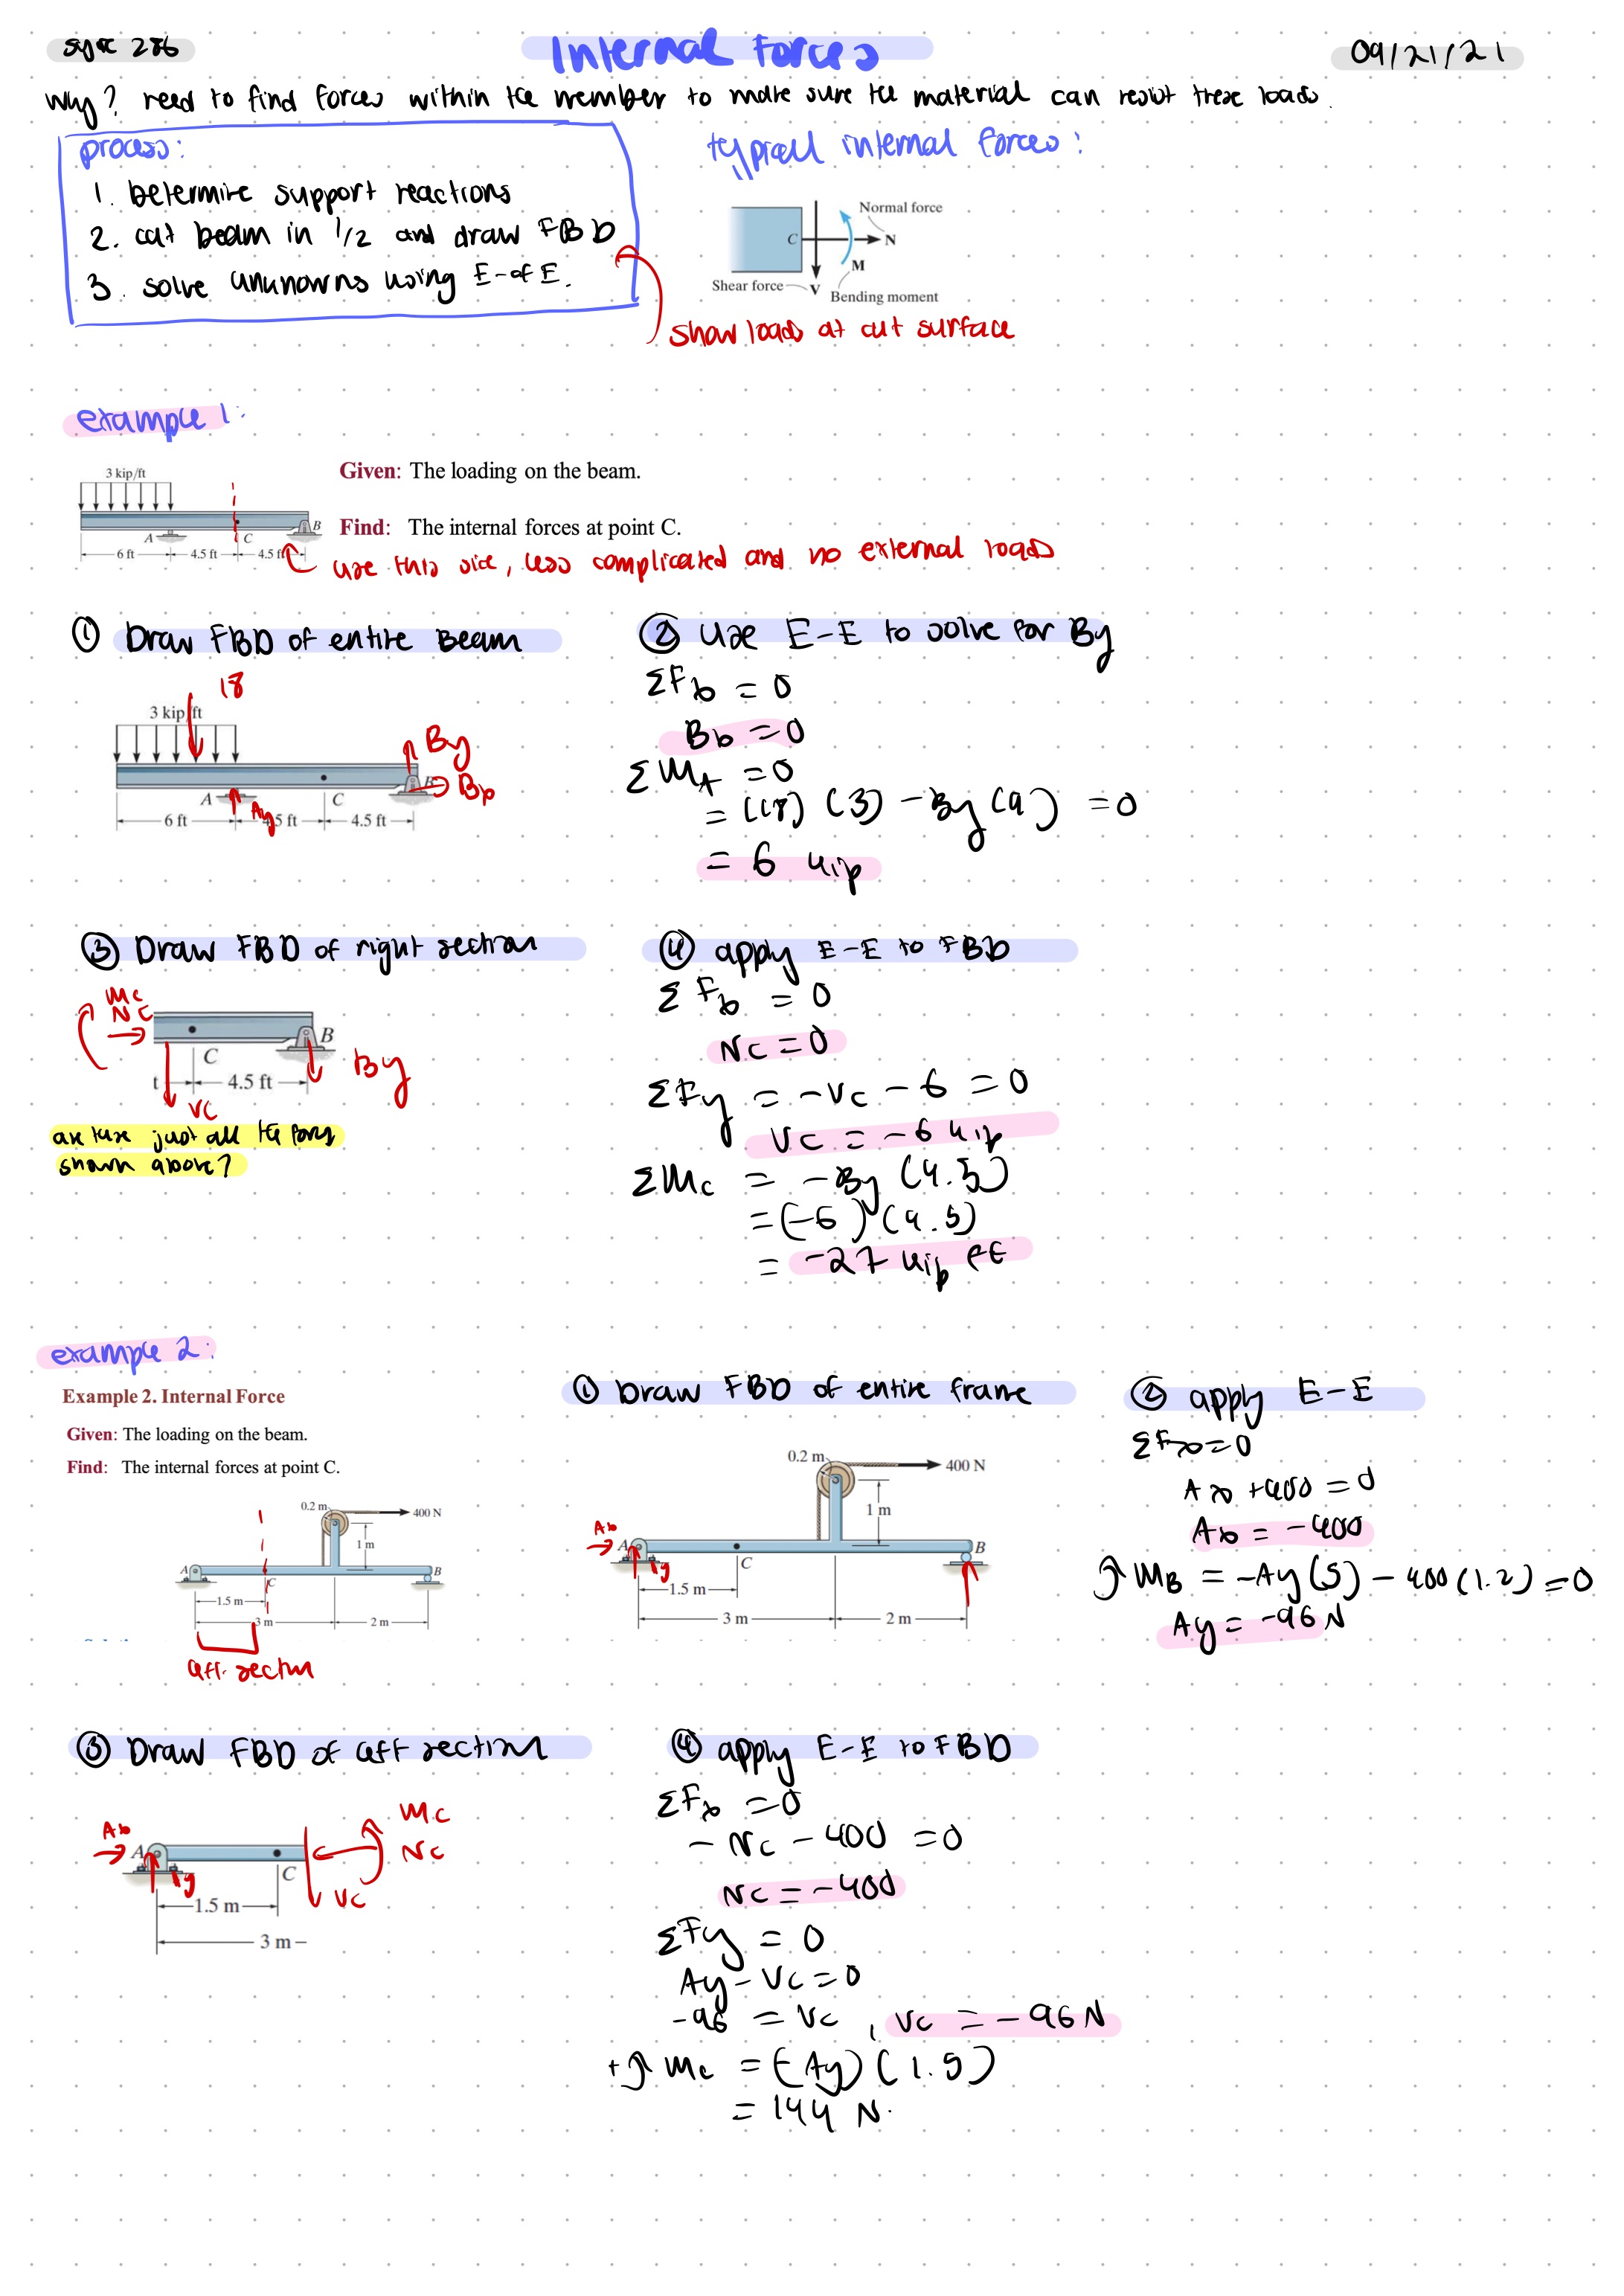 syde 286
Internal Forces
09/21/21
why? need to find forces within the member to make sure the material can resist these loads.
process:
1. Determine support reactions
2. cut beam in 1/2 and draw FBD
3. solve unknowns using E-of E.
typical internal forces:
Normal force
C
N
M
Shear force
V
Bending moment
show loads at cut surface
example 1:
3 kip/ft
A
C
B
6 ft
4.5 ft
4.5 ft
Given: The loading on the beam.
Find: The internal forces at point C.
use this side, less complicated and no external loads
① Draw FBD of entire Beam
18
3 kip/ft
By
Bx
A
Ay
C
B
6 ft
4.5 ft
4.5 ft
② use E-E to solve for By
ΣFx = 0
Bx = 0
ΣMA = 0
= (18) (3) - By (9) = 0
= 6 kip
③ Draw FBD of right section
Mc
Nc
B
C
By
t
4.5 ft
Vc
are these just all the forces
shown above?
④ apply E-E to FBD
ΣFx = 0
Nc = 0
ΣFy = -Vc - 6 = 0
Vc = -6 kip
ΣMc = -By (4.5)
= (-6) (4.5)
= -27 kip ft
example 2:
Example 2. Internal Force
Given: The loading on the beam.
Find: The internal forces at point C.
0.2 m
400 N
1 m
A
C
B
1.5 m
3 m
2 m
left section
① Draw FBD of entire frame
0.2 m
400 N
1 m
Ax
A
Ay
C
B
1.5 m
3 m
2 m
② apply E-E
ΣFx=0
Ax +400 = 0
Ax = -400
MB = -Ay(5) - 400(1.2) = 0
Ay = -96 N
③ Draw FBD of left section
Ax
A
Ay
C
Mc
Nc
Vc
1.5 m
3 m
④ apply E-E to FBD
ΣFx = 0
-Nc - 400 = 0
Nc = -400
ΣFy = 0
Ay - Vc = 0
-96 = Vc , Vc = -96 N
+ Mc = (-Ay) (1.5)
= 144 N.